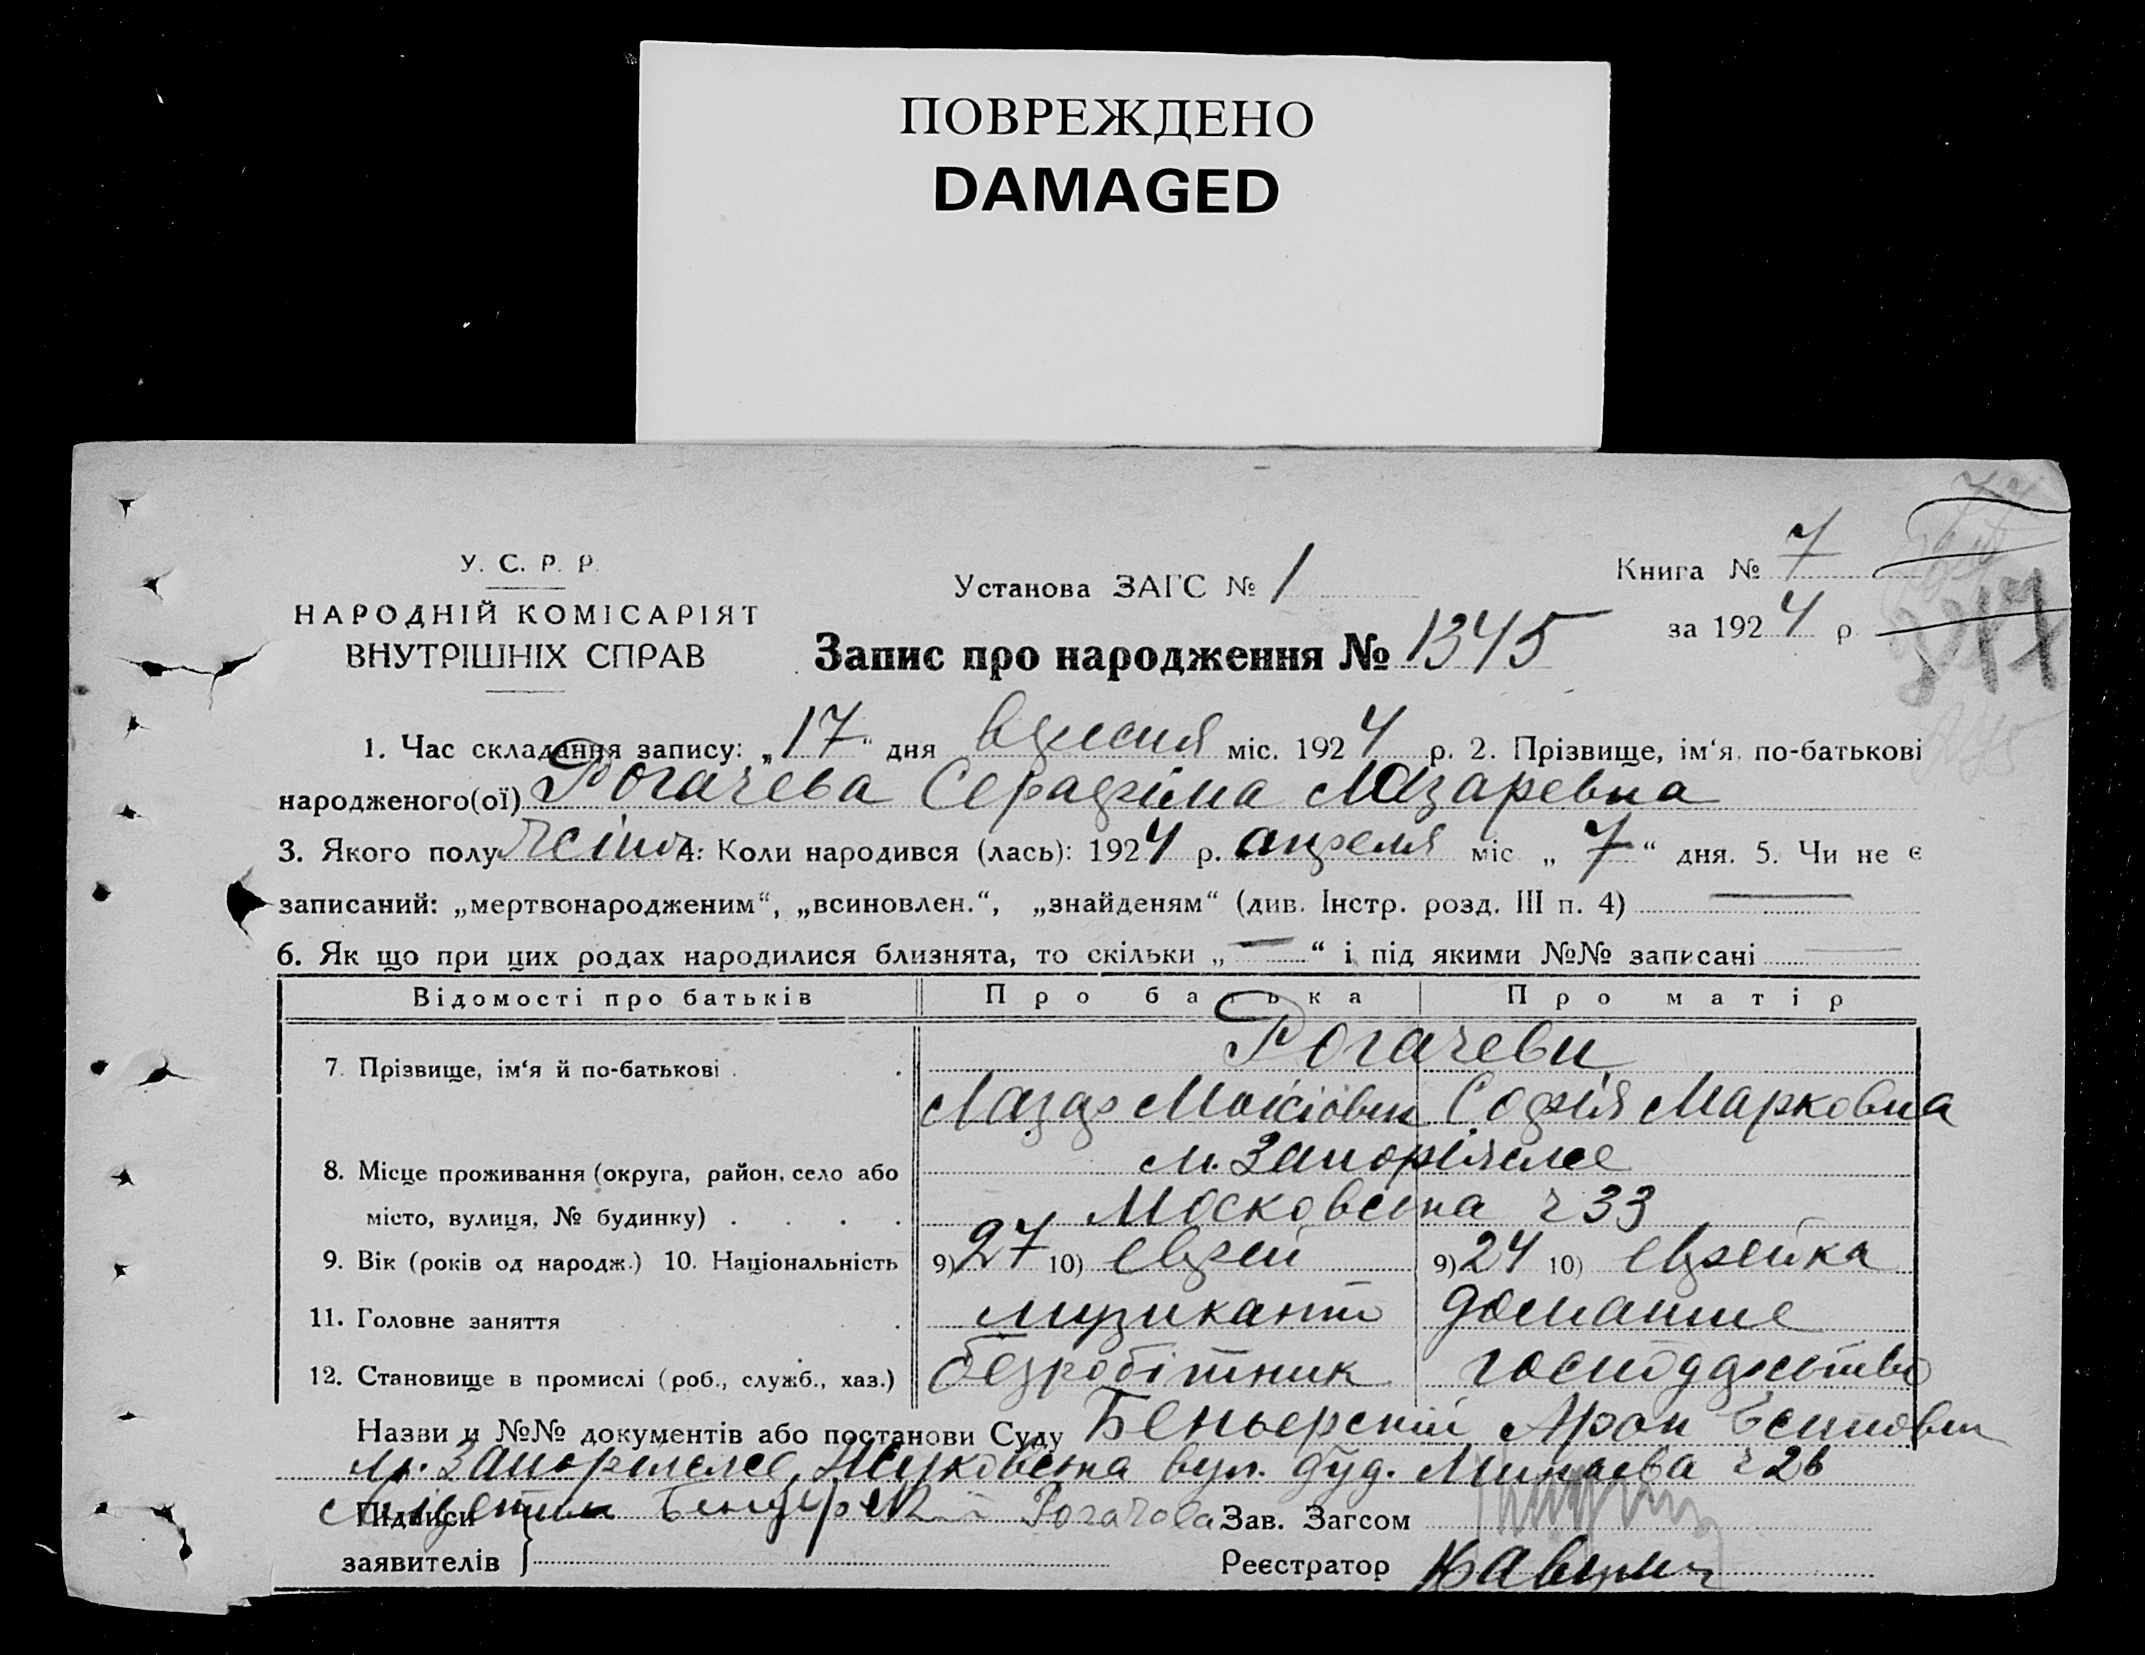 ПОВРЕЖДЕНО
DAMAGED
У. С. Р. Р.
НАРОДНІЙ КОМІСАРІЯТ
ВНУТРІШНІХ СПРАВ
Установа ЗАГС № 1
Запис про народження № 1345
Книга № 7
за 1924 р
317
1. Час складання запису: „17“ дня вересня міс. 1924 р. 2. Прізвище, ім‘я, по-батькові
народженого(ої) Рогачева Серафіма Лазаревна
3. Якого полу жіноч. 4. Коли народився (лась): 1924 р. апреля міс „7“ дня. 5. Чи не є
записаний: „мертвонародженим“, „всиновлен.“, „знайденям“ (див. Інстр. розд. III п. 4) —
6. Як що при цих родах народилися близнята, то скільки „—“ і під якими №№ записані —
Відомості про батьків Про батька Про матір
7. Прізвище, ім‘я й по-батькові Рогачеви
Лазар Моісіович Софія Марковна
8. Місце проживання (округа, район, село або м. Запоріжже
місто, вулиця, № будинку) Московська ч 33
9. Вік (років од народж.) 10. Національність 9) 27 10) еврей 9) 24 10) еврейка
11. Головне заняття музикант домашнє
12. Становище в промислі (роб., служб., хаз.) безробітник господарство
Назви и №№ документів або постанови Суду Арон
м. Запоріжже, Жуковська вул. буд. Минаева ч 26
Підписи Рогачова Зав. Загсом
заявителів } Реєстратор